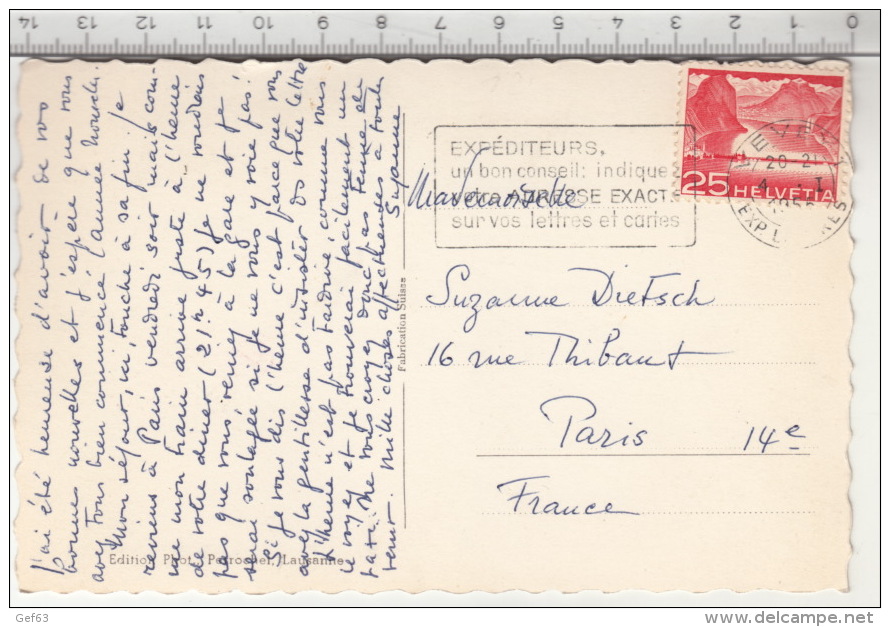 14 13 12 11 10 9 8 7 6 5 4 3 2 1 0
J'ai été heureuse d'avoir de vos
bonnes nouvelles et j'espère que vous
avez tous bien commencé l'année nouvelle.
Mon séjour, ici, touche à sa fin je
reviens à Paris vendredi soir mais com-
me mon train arrive juste à l'heure
de votre dîner (21h 45) je ne voudrais
pas que vous veniez à la gare et je
serai soulagée si je ne vous y vois pas!
Si je vous dis l'heure c'est parce que vous
avez la gentillesse d'insister ds votre lettre
L'heure n'est pas tardive, comme vous
le voyez et je trouverai facilement un
taxi. Ne vous croyez donc pas tenue de
venir. Mille choses affectueuses à toute
Suzanne
Edition Phot. Perrochet, Lausanne
Fabrication Suisse
EXPÉDITEURS,
un bon conseil: indiquez
votre ADRESSE EXACTE
sur vos lettres et cartes
25 HELVETIA
VEVEY
20-21
4 I
EXP. LETTRES
Suzanne Dietsch
16 rue Thibaut
Paris 14e
France
Gef63
www.delcampe.net